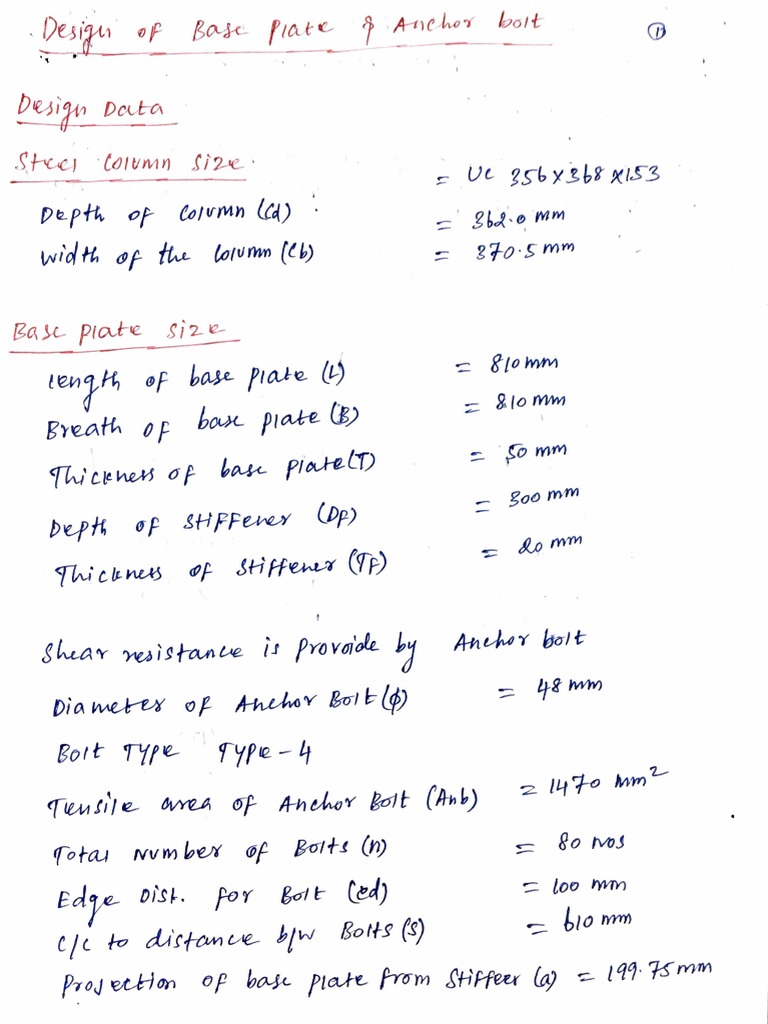 Design of Base Plate & Anchor bolt
①
Design Data
Steel Column Size.
= UC 356 x 368 x 153
Depth of Column (Cd)
= 362.0 mm
Width of the Column (Cb)
= 370.5 mm
Base plate size
Length of base plate (L) = 810 mm
Breath of base plate (B) = 810 mm
Thickness of base plate (T) = 50 mm
Depth of Stiffener (Df) = 300 mm
Thickness of Stiffener (Tf) = 20 mm
Shear resistance is Provoide by Anchor bolt
Diameter of Anchor Bolt (ϕ) = 48 mm
Bolt Type Type - 4
Tensile area of Anchor Bolt (Anb) = 1470 mm²
Total Number of Bolts (n) = 80 nos
Edge Dist. for Bolt (ed) = 100 mm
C/C to distance b/w Bolts (s) = 610 mm
Projection of base plate from Stiffeer (a) = 199.75 mm